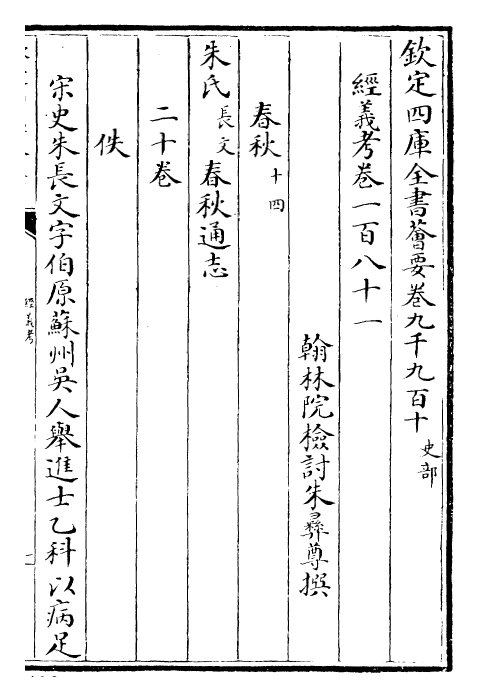 欽定四庫全書薈要卷九千九百十 史部
經義考卷一百八十一
翰林院檢討朱彝尊撰
春秋 十四
朱氏 長文 春秋通志
二十卷
佚
宋史朱長文字伯原蘇州吳人舉進士乙科以病足
經義考